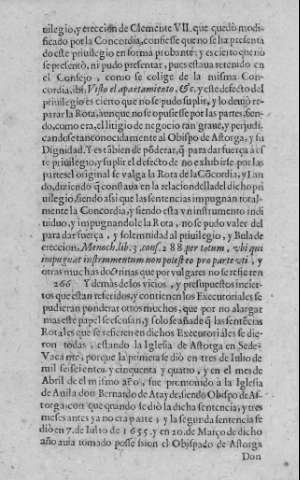 uilegio, y ereccion de Clemente VII. que quedò modi-
ficado por la Concordia, confiesse que no se ha presenta
do este priuilegio en forma probante; y es cierto que no
se presentò, ni pudo presentar, pues estaua retenido en
el Consejo, como se colige de la misma Concor
cordia, ibi: Visto el apartamiento, &c. y este defecto del
priuilegio es cierto que no se pudo suplir, y lo deuiò re-
parar la Rota, aunque no se opusiesse por las partes, sien-
do, como era, el litigio de negocio tan graue, y perjudi-
cando se tan conocidamente al Obispo de Astorga, y su
Dignidad. Y es tãbien de põderar, q̃ para dar fuerça à este
te priuilegio, y suplir el defecto de no exhibirse por las
partes el original se valga la Rota de la Cõcordia, y Lan
do, diziendo q̃ constaua en la relacion della del dicho pri
uilegio, siendo assi que las sentencias impugnan total-
mente la Concordia, y siendo esta vn instrumento indi
uiduo, y impugnandole la Rota, no se pudo valer del
para dar fuerça, y solemnidad al priuilegio, y Bula de
ereccion. Menoch. lib. 3. cons. 288. per totum, vbi qui
impugnat instrumentum non potest eo pro parte vti, y
otras muchas doctrinas que por vulgares no se refieren
266 Y demàs de los vicios, y presupuestos incier-
tos que estan referidos, y contienen los Executoriales se
pudieran ponderar otros muchos, que por no alargar
mas este papel se escusan, y solo se añade q̃ las sentẽcias
Rotales que se refieren en dichos Executoriales se die-
ron todas, estando la Iglesia de Astorga en Sede-
Vacante, porque la primera se diò en tres de Iulio de
mil seiscientos y cinquenta y quatro, y en el mes de
Abril de el mismo año, fue promouido à la Iglesia
de Auila don Bernardo de Atayde, siendo Obispo de As-
torga: con que quando se diò la dicha sentencia, y tres
meses antes ya no era parte; y la segunda sentencia se
diò en 7. de Iulio de 1655. y en 20. de Março de dicho
año auia tomado possession el Obispado de Astorga
Don